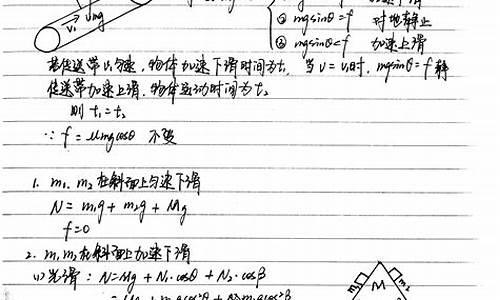 ② mgsinθ=f 对地静止
③ mgsinθ<f 加速上滑
v₁ μmg
若传送带v₁匀速,物体加速下滑时间为t₁ 当v=v₁时,mgsinθ=f
传送带加速上滑,物体运动时间为t₂
则 t₁=t₂
∵ f=μmgcosθ 不变
1. m₁、m₂在斜面上匀速下滑
N=m₁g+m₂g+Mg
f=0
2. m₁m₂在斜面上加速下滑
(1)光滑:N=Mg+N₁·cosθ+N₂·cosβ
M
m₂